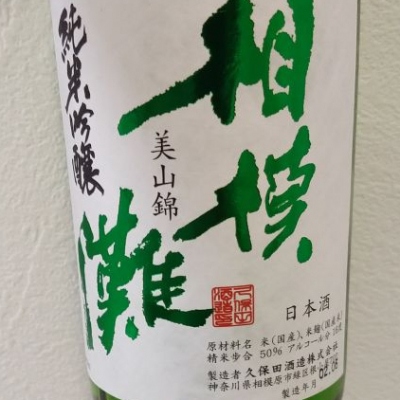 相模
灘
純米吟醸
美山錦
日本酒
原材料名 米(国産)、米麹(国産米)
精米歩合 50% アルコール分
製造者 久保田酒造株式会社
神奈川県相模原市緑区根
製造年月